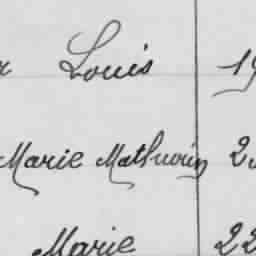 Louis 19
Marie Mathurin 2
Marie 22